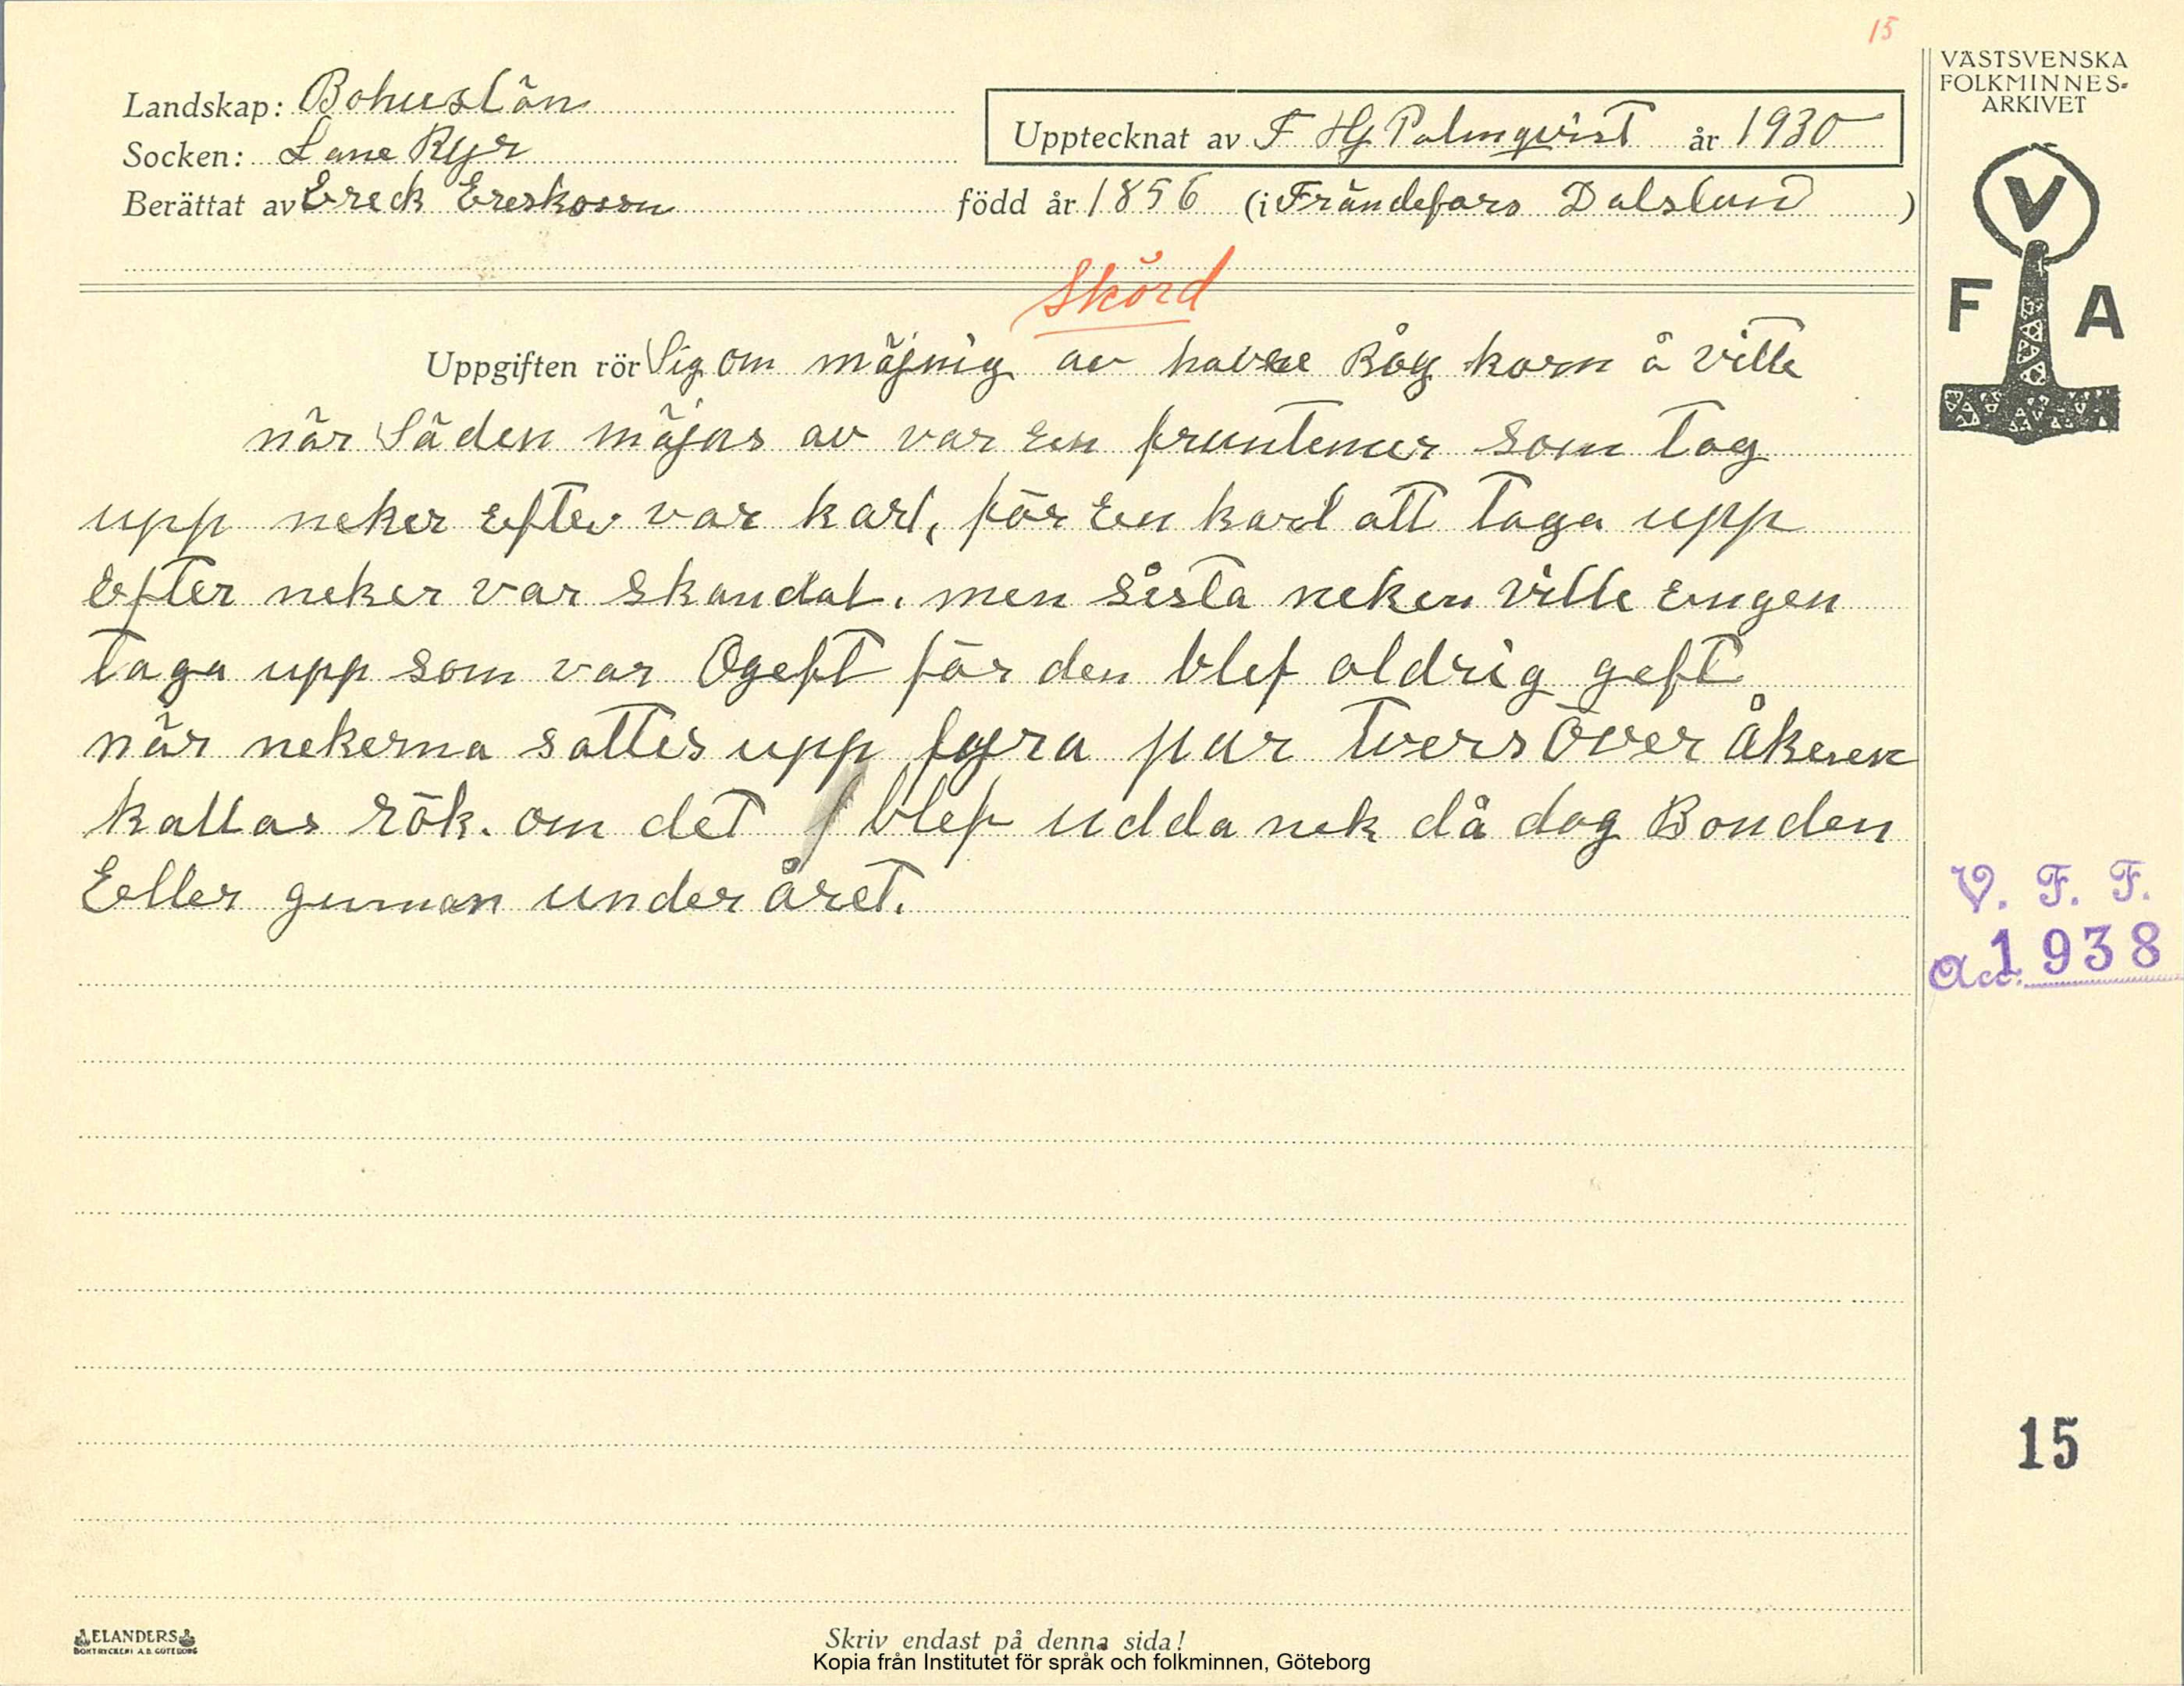 15
VÄSTSVENSKA
FOLKMINNES-
ARKIVET
Landskap: Bohuslän
Socken: Lane Ryr
Upptecknat av F Hj Palmqvist år 1930
Berättat av Ereck Ereskoson född år 1856 (i Frändefors Dalsland)
V
F A
Skörd
Uppgiften rör Sig om mäjnig av havre Råg korn å vitte
när Säden mäjas av var en fruntemer som tog
upp neker efter var karl, för en karl att taga upp
Efter neker var skandal. men sista neken ville Eingen
taga upp som var Ogeft för den blef aldrig geft
när nekerna sattes upp fyra par tvers Över åkeren
kallas rök. om det blef udda nek då dog Bonden
Eeller gumman under året.
V. F. F.
Acc. 1938
15
ELANDERS
BOKTRYCKERI A.B. GÖTEBORG
Skriv endast på denna sida!
Kopia från Institutet för språk och folkminnen, Göteborg